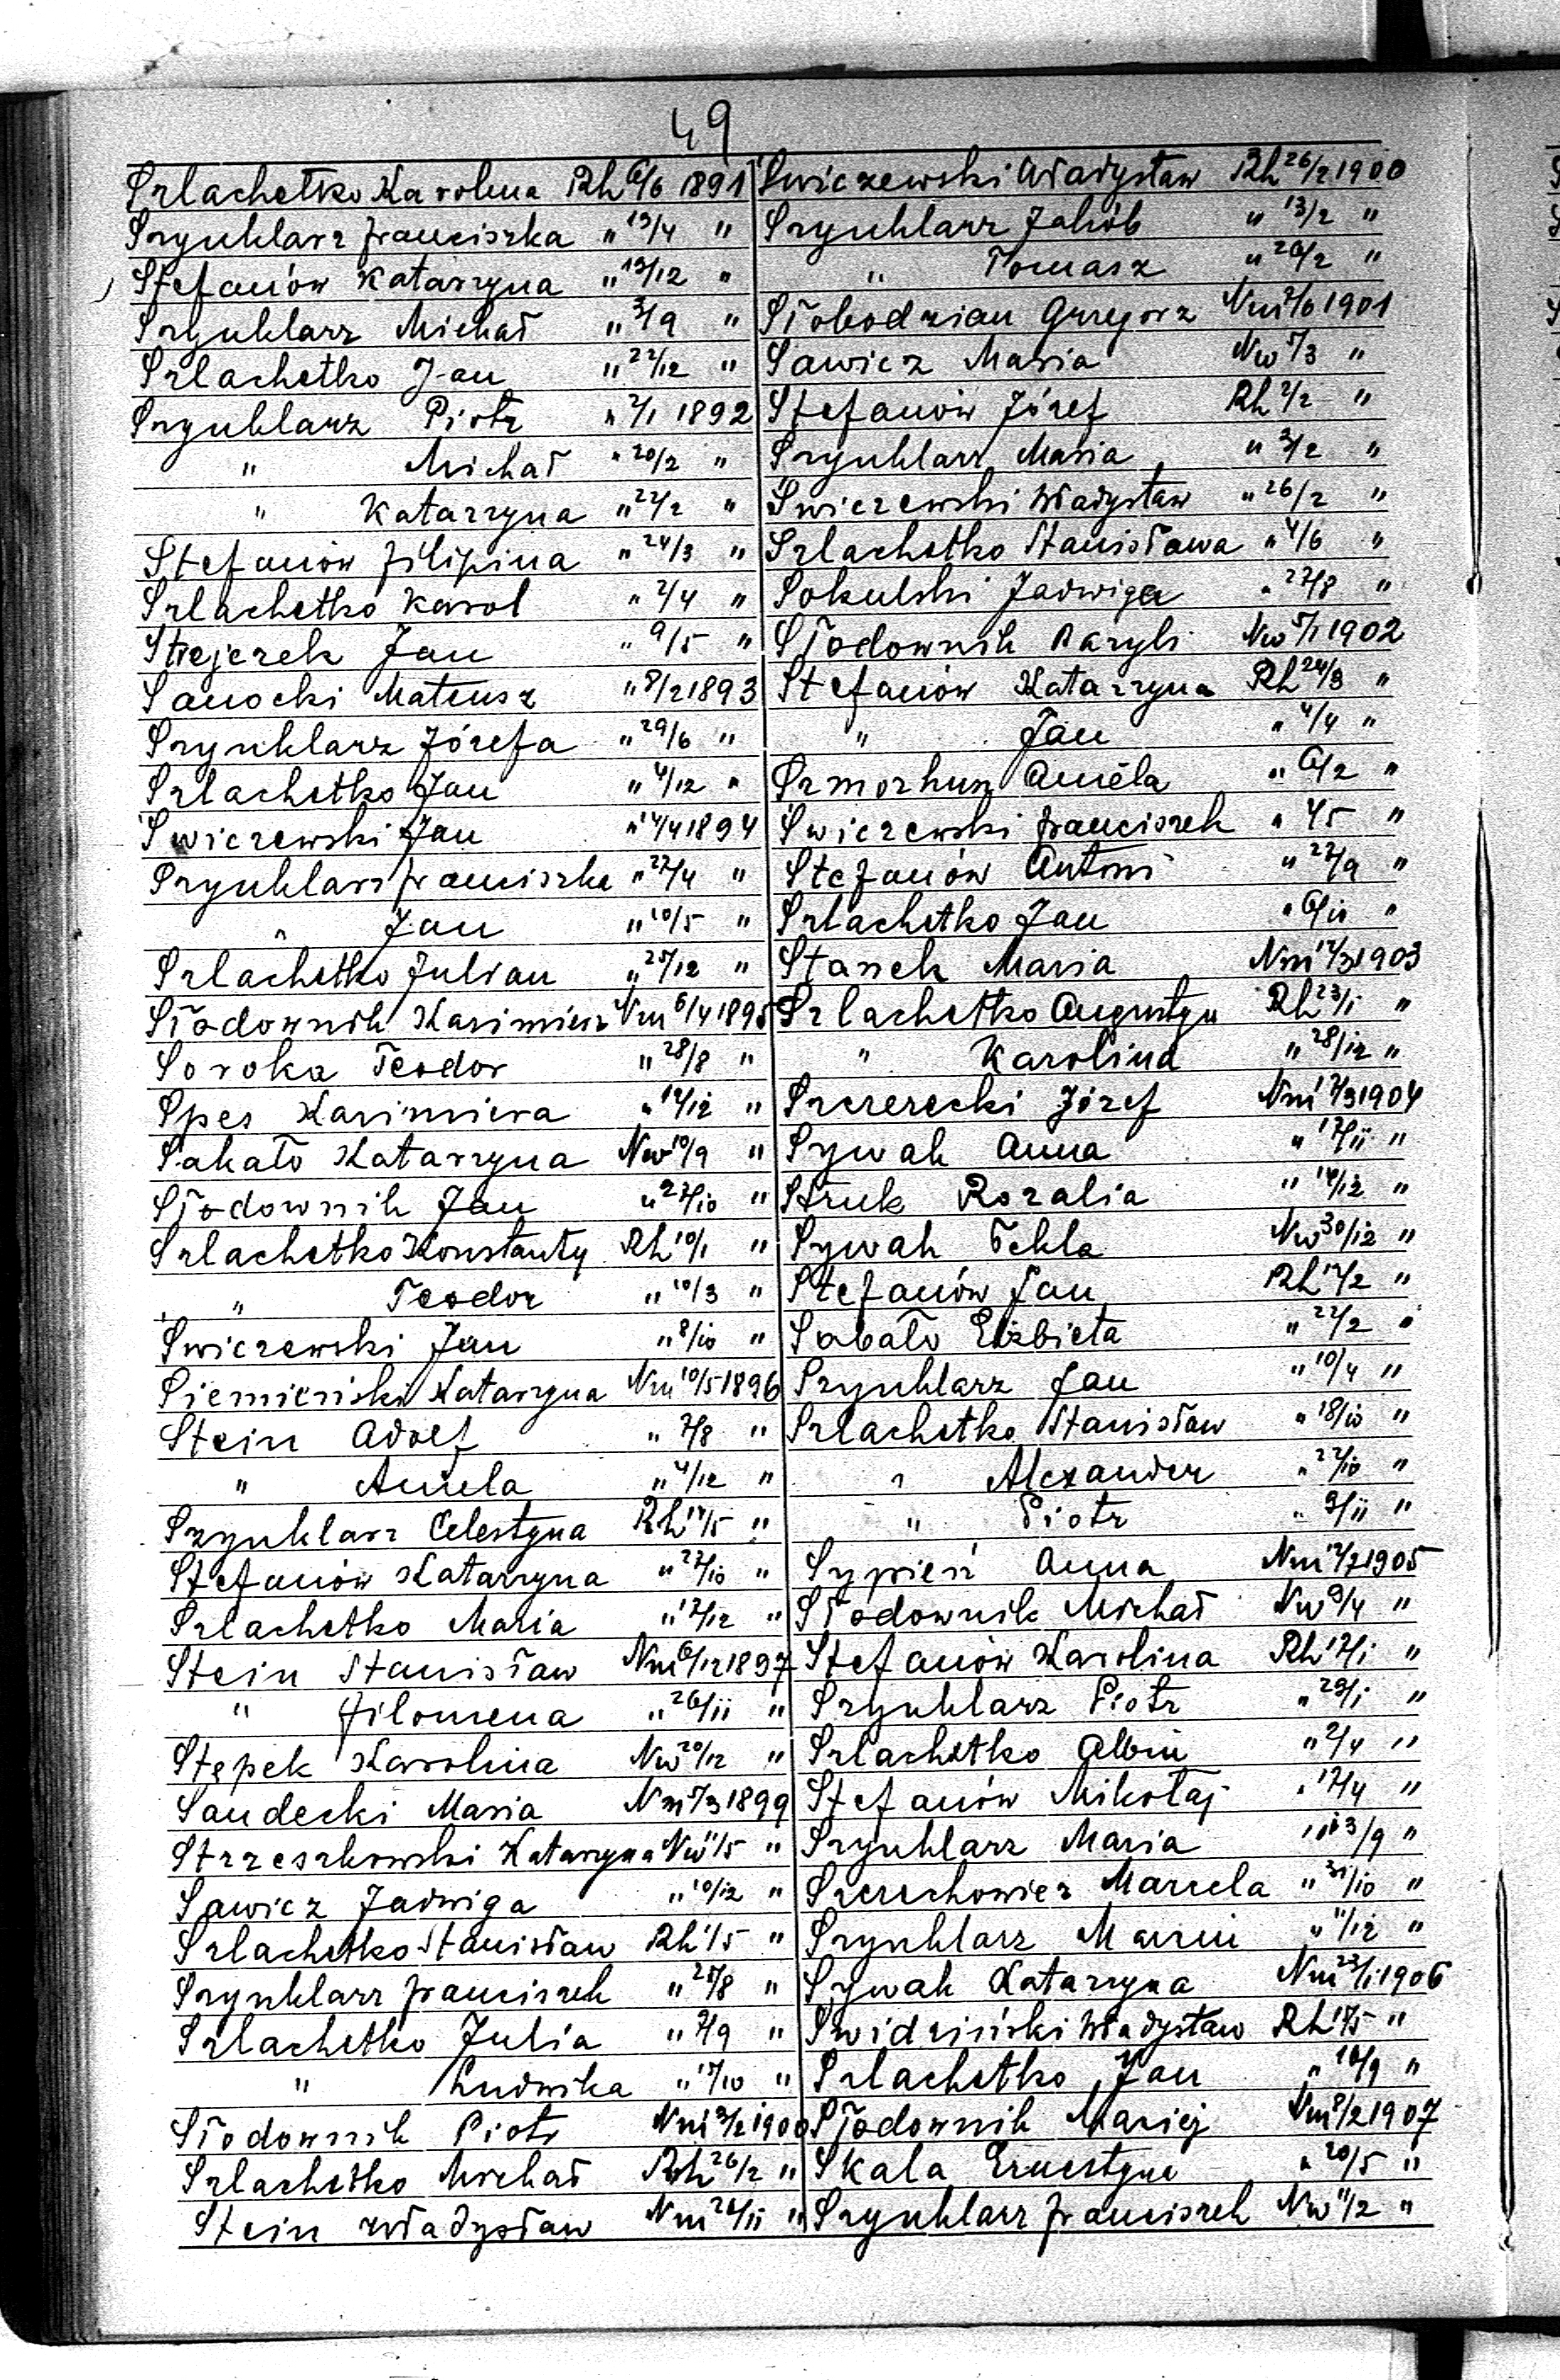 49
Szlachetko Karolina Rh 6/6 1891
Szynklarz Franciszka " 19/4 "
Stefanów Katarzyna " 19/12 "
Szynklarz Michał " 3/9 "
Szlachetko Jan " 22/12 "
Szynklarz Piotr " 2/1 1892
" Michał " 20/2 "
" Katarzyna " 22/2 "
Stefanów Filipina " 24/3 "
Szlachetko Karol " 2/4 "
Stejerek Jan " 9/5 "
Sanocki Mateusz " 8/2 1893
Szynklarz Józefa " 29/6 "
Szlachetko Jan " 4/12 "
Świczewski Jan 1894
Szynklarz Franciszka " 27/4 "
" Jan " 10/5 "
Szlachetko Julian " 25/12 "
Słodownik Kazimierz Nm 6/4 1895
Soroka Teodor " 28/8 "
Spes Kazimiera " 12/12 "
Sakało Katarzyna Nw 10/9 "
Słodownik Jan " 27/10 "
Szlachetko Konstanty Rh 10/1 "
" Teodor " 10/3 "
Swiczewski Jan " 8/10 "
Siemieński Katarzyna Nm 10/5 1896
Stein Adolf " 7/8 "
" Aniela " 4/12 "
Szynklarz Celestyna Rh 17/5 "
Stefanów Katarzyna " 27/10 "
Szlachetko Maria " 17/12 "
Stein Stanisław Nm 6/12 1897
" Filomena " 26/11 "
Stępek Karolina Nw 20/12 "
Sandecki Maria Nm 5/3 1899
Strzeszkowski Katarzyna Nw 11/5 "
Sawicz Jadwiga " 10/12 "
Szlachetko Stanisław Rh 1/5 "
Szynklarz Franciszek " 25/8 "
Szlachetko Julia " 2/9 "
" Ludwika " 17/10 "
Słodownik Piotr Nm 1900
Szlachetko Michał Rh 26/2 "
Stein Władysław Nm 26/11 "
Świczewski Władysław Rh 26/2 1900
Szynklarz Jakób " 13/2 "
" Tomasz " 26/2 "
Słobodzian Grzegorz Nm 1901
Sawicz Maria Nw 5/3 "
Stefanów Józef Rh 2/2 "
Szynklarz Maria " 3/2 "
Swiczewski Władysław " 26/2 "
Szlachetko Stanisława " 4/6 "
Sokulski Jadwiga " 27/8 "
Słodownik Bazyli Nw 5/1 1902
Stefanów Katarzyna Rh 24/3 "
" Jan " 4/4 "
Szmorhun Aniela " 6/2 "
Swiczewski Franciszek " "
Stefanów Antoni " 27/9 "
Szlachetko Jan " 6/10 "
Stanek Maria Nm 12/3 1903
Szlachetko Augustyn Rh 23/1 "
" Karolina " 28/12 "
Szczerecki Józef Nm 1904
Sywak Anna " 17/11 "
Struk Rozalia " 14/12 "
Sywak Tekla Nw 30/12 "
Stefanów Jan Rh 17/2 "
Sabało Elżbieta " 22/2 "
Szynklarz Jan " 10/4 "
Szlachetko Stanisław " 18/10 "
" Alexander " 22/10 "
" Piotr " 9/11 "
Sypień Anna Nm 1905
Słodownik Michał Nw 9/4 "
Stefanów Karolina Rh 17/1 "
Szynklarz Piotr " 29/1 "
Szlachetko Albin " 2/4 "
Stefanów Mikołaj " 17/4 "
Szynklarz Maria " 13/9 "
Szczechowicz Marcela " 31/10 "
Szynklarz Marcin " 11/12 "
Sywak Katarzyna Nm 23/1 1906
Swidziński Władysław Rh "
Szlachetko Jan " 16/9 "
Słodownik Maciej Nm 8/2 1907
Skala Ernestyna " 20/5 "
Szynklarz Franciszek Nw 11/2 "